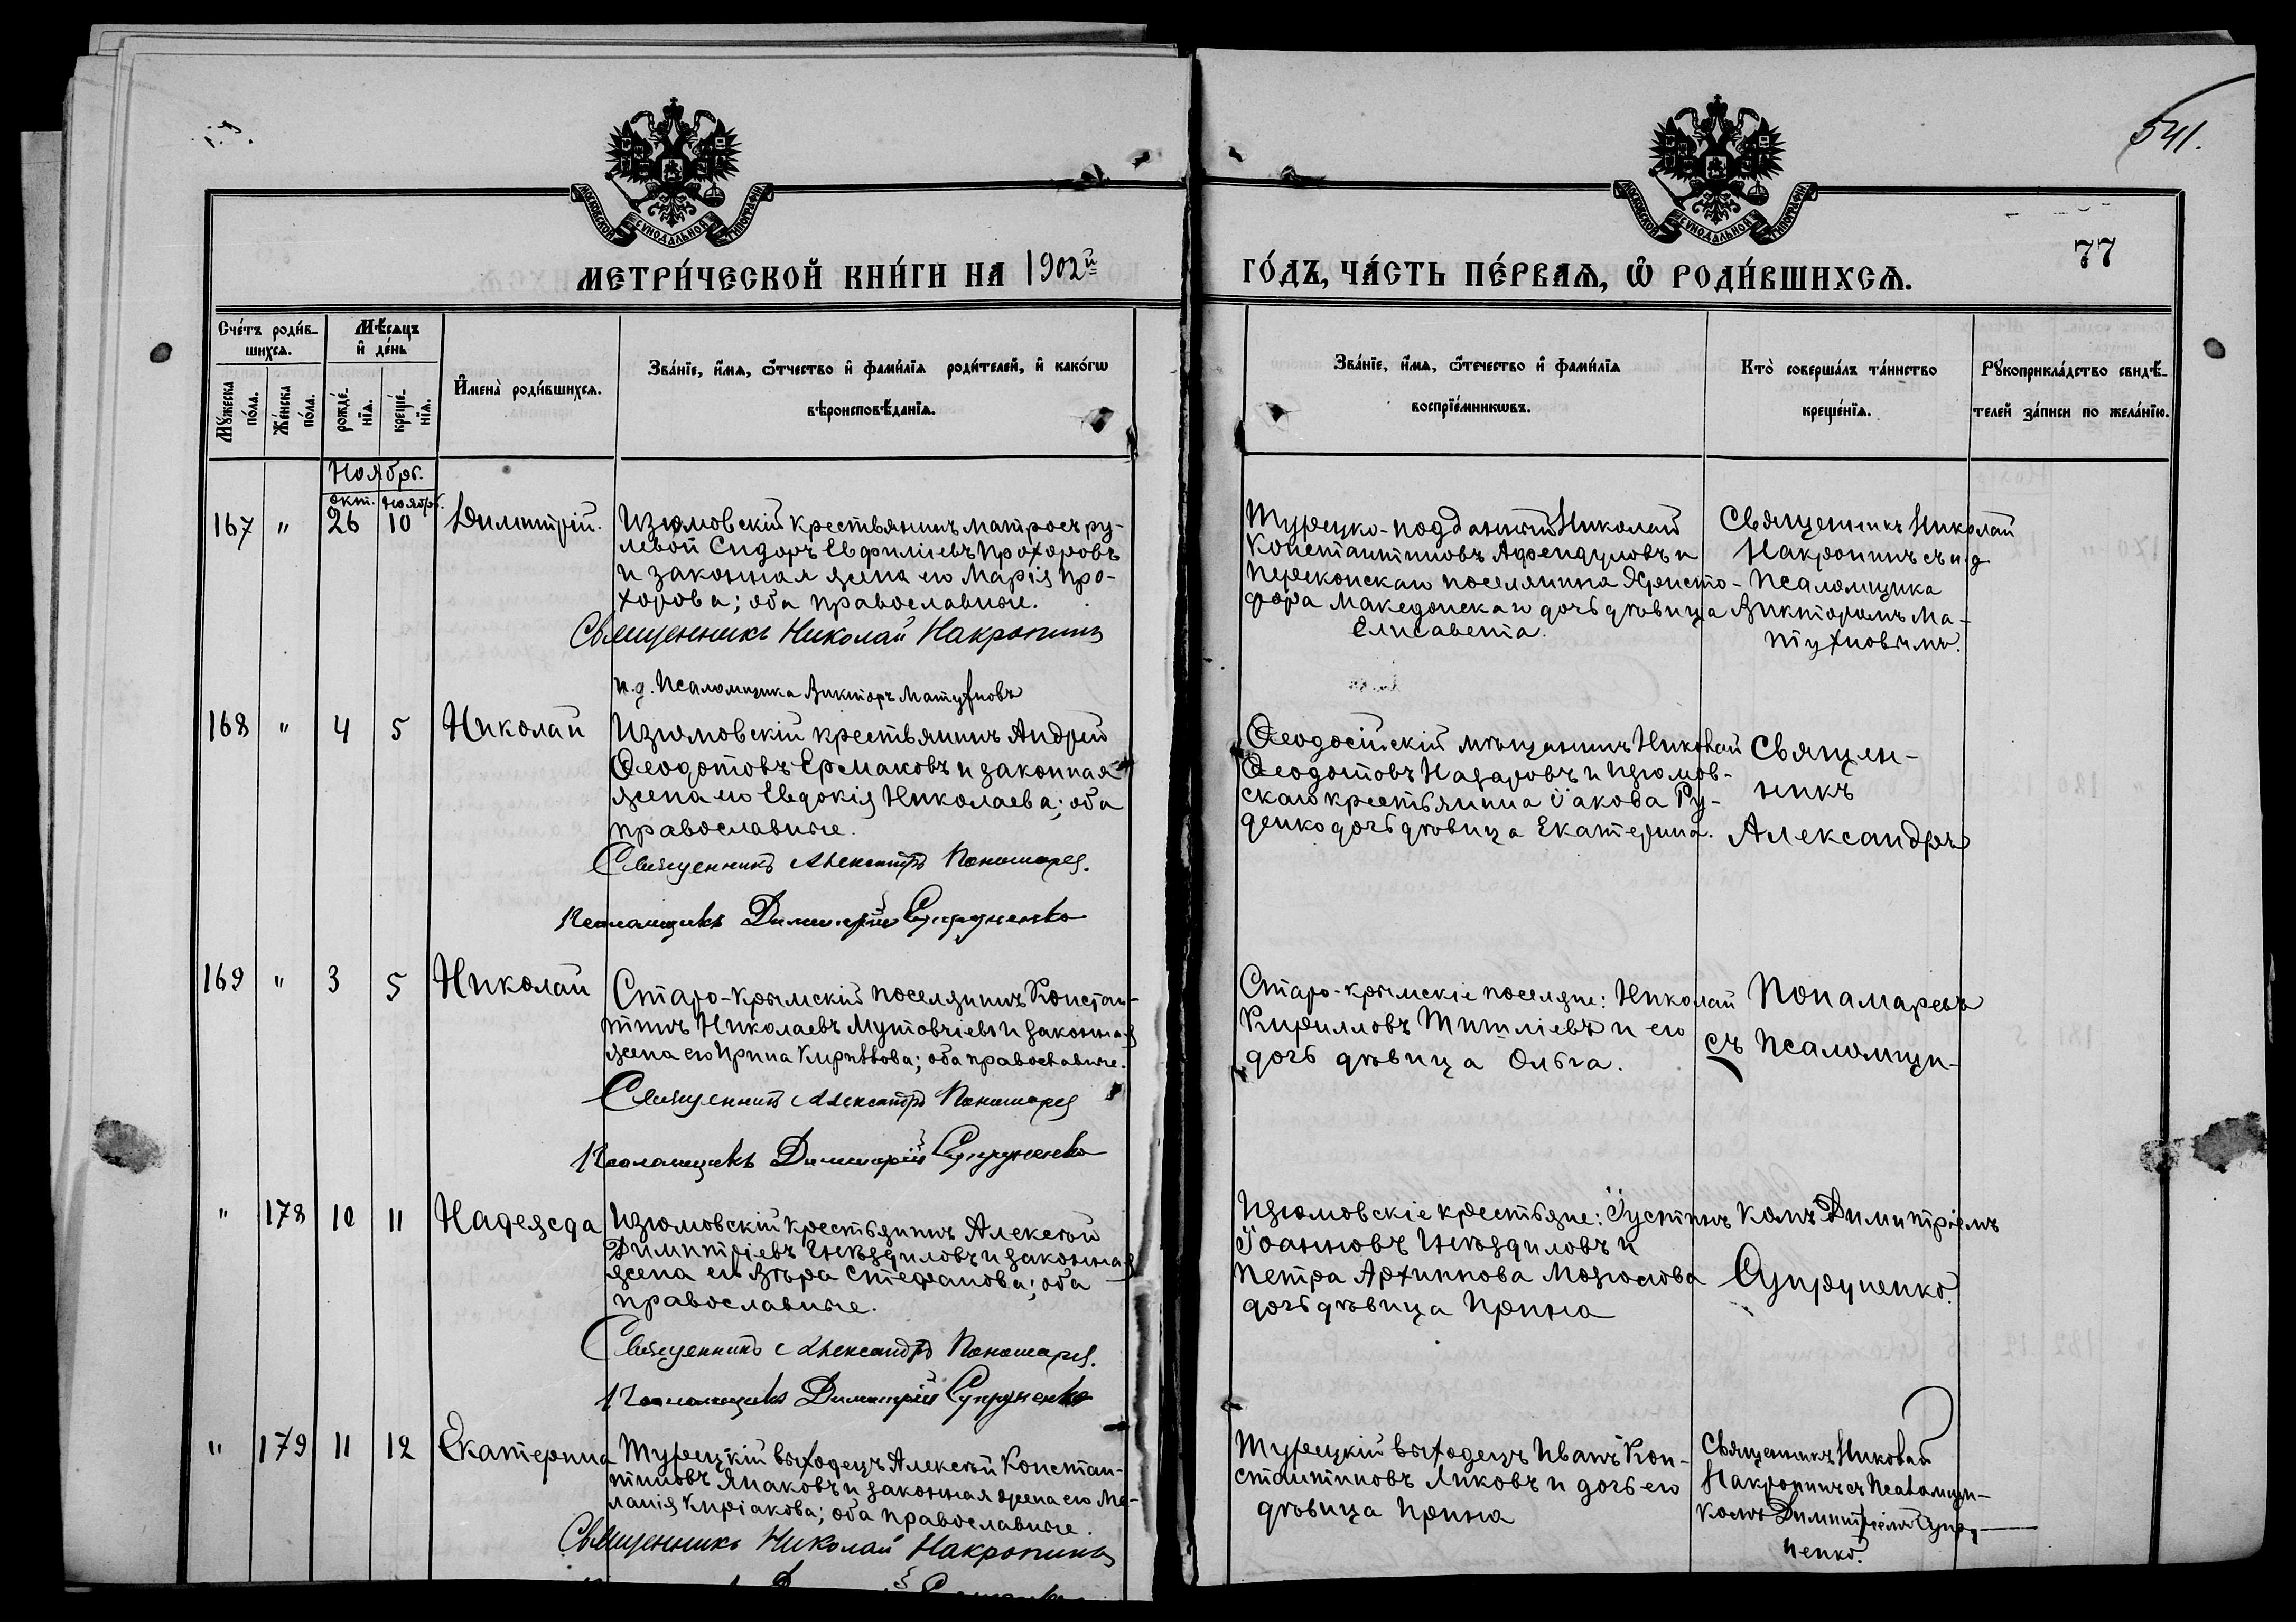 541.
77
МОСКОВСКОЙ СѴНОДАЛЬНОЙ ТИПОГРАФІИ
МОСКОВСКОЙ СѴНОДАЛЬНОЙ ТИПОГРАФІИ
МЕТРИ́ЧЕСКОЙ КНИ́ГИ НА 1902й ГО́ДЪ, ЧА́СТЬ ПЕ́РВАѦ, Ѡ РОДИ́ВШИХСѦ.
Сче́тъ роди́в-
шихсѧ.
Мꙋжеска по́ла.
Же́нска по́ла.
Мѣ́сѧцъ
и҆ де́нь
рожде́-
нїѧ.
креще́-
нїѧ.
И҆мена̀ роди́вшихсѧ.
Зва́нїе, и҆́мѧ, ѻ҆́тчество и҆ фами́лїѧ роди́телей, и҆ како́гѡ
вѣроисповѣ́данїѧ.
Зва́нїе, и҆́мѧ, ѻ҆́течество и҆ фами́лїѧ
воспрїе́мникѡвъ.
Кто̀ соверша́лъ та́инство
креще́нїѧ.
Рꙋкоприкла́дство свидѣ́-
телей за́писи по жела́нїю.
Ноябрь.
окт. ноябрь.
167 " 26 10 Димитрій.
Изюмовскій крестьянинъ матросъ ру-
левой Сидоръ Евфиміевъ Прохоровъ
и законная жена его Марія Про-
хорова; оба православные.
Священникъ Николай Накропинъ
и.д. Псаломщика Викторъ Матухновъ
Турецко-подданный Николай
Константиновъ Афендуловъ и
Перекопскаго поселянина Христо-
фора Македонскаго дочь дѣвица
Елисавета.
Священникъ Николай
Накропинъ съ и.д
Псаломщика
Викторомъ Ма-
тухновымъ.
168 " 4 5 Николай
Изюмовскій крестьянинъ Андрей
Ѳеодотовъ Ермаковъ и законная
жена его Евдокія Николаева; оба
православные.
Священникъ Александръ Пономарев.
Псаломщикъ Димитрій Супруненко
Ѳеодосійскій мѣщанинъ Николай
Ѳеодотовъ Назаровъ и Изюмов-
скаго крестьянина Іакова Ру-
денко дочь дѣвица Екатерина.
Священ-
никъ
Александръ
169 " 3 5 Николай
Старо-Крымскій поселянинъ Констан-
тинъ Николаевъ Мутовчіевъ и законная
жена его Ирина Кириллова; оба православные.
Священникъ Александръ Пономарев
Псаломщикъ Димитрій Супруненко
Старо-Крымскіе поселяне: Николай
Кирилловъ и его
дочь дѣвица Ольга.
Понамаревъ
съ Псаломщи-
" 178 10 11 Надежда
Изюмовскій крестьянинъ Алексѣй
Димитріевъ Гнѣздиловъ и законная
жена его Вѣра Стефанова; оба
православные.
Священникъ Александръ Пономарев.
Псаломщикъ Димитрій Супруненко
Изюмовскіе крестьяне: Іустинъ
Іоанновъ Гнѣздиловъ и
Петра Архиппова
дочь дѣвица Ирина
комъ Димитріемъ
Супруненко.
" 179 11 12 Екатерина
Турецкій выходецъ Алексѣй Констан-
тиновъ и законная жена его Ме-
ланія Киріакова; оба православные.
Священникъ Николай Накропинъ
Турецкій выходецъ Иванъ Кон-
стантиновъ и дочь его
дѣвица Ирина
Священникъ Николай
Накропинъ съ Псаломщи-
комъ Димитріемъ Супру-
ненко.